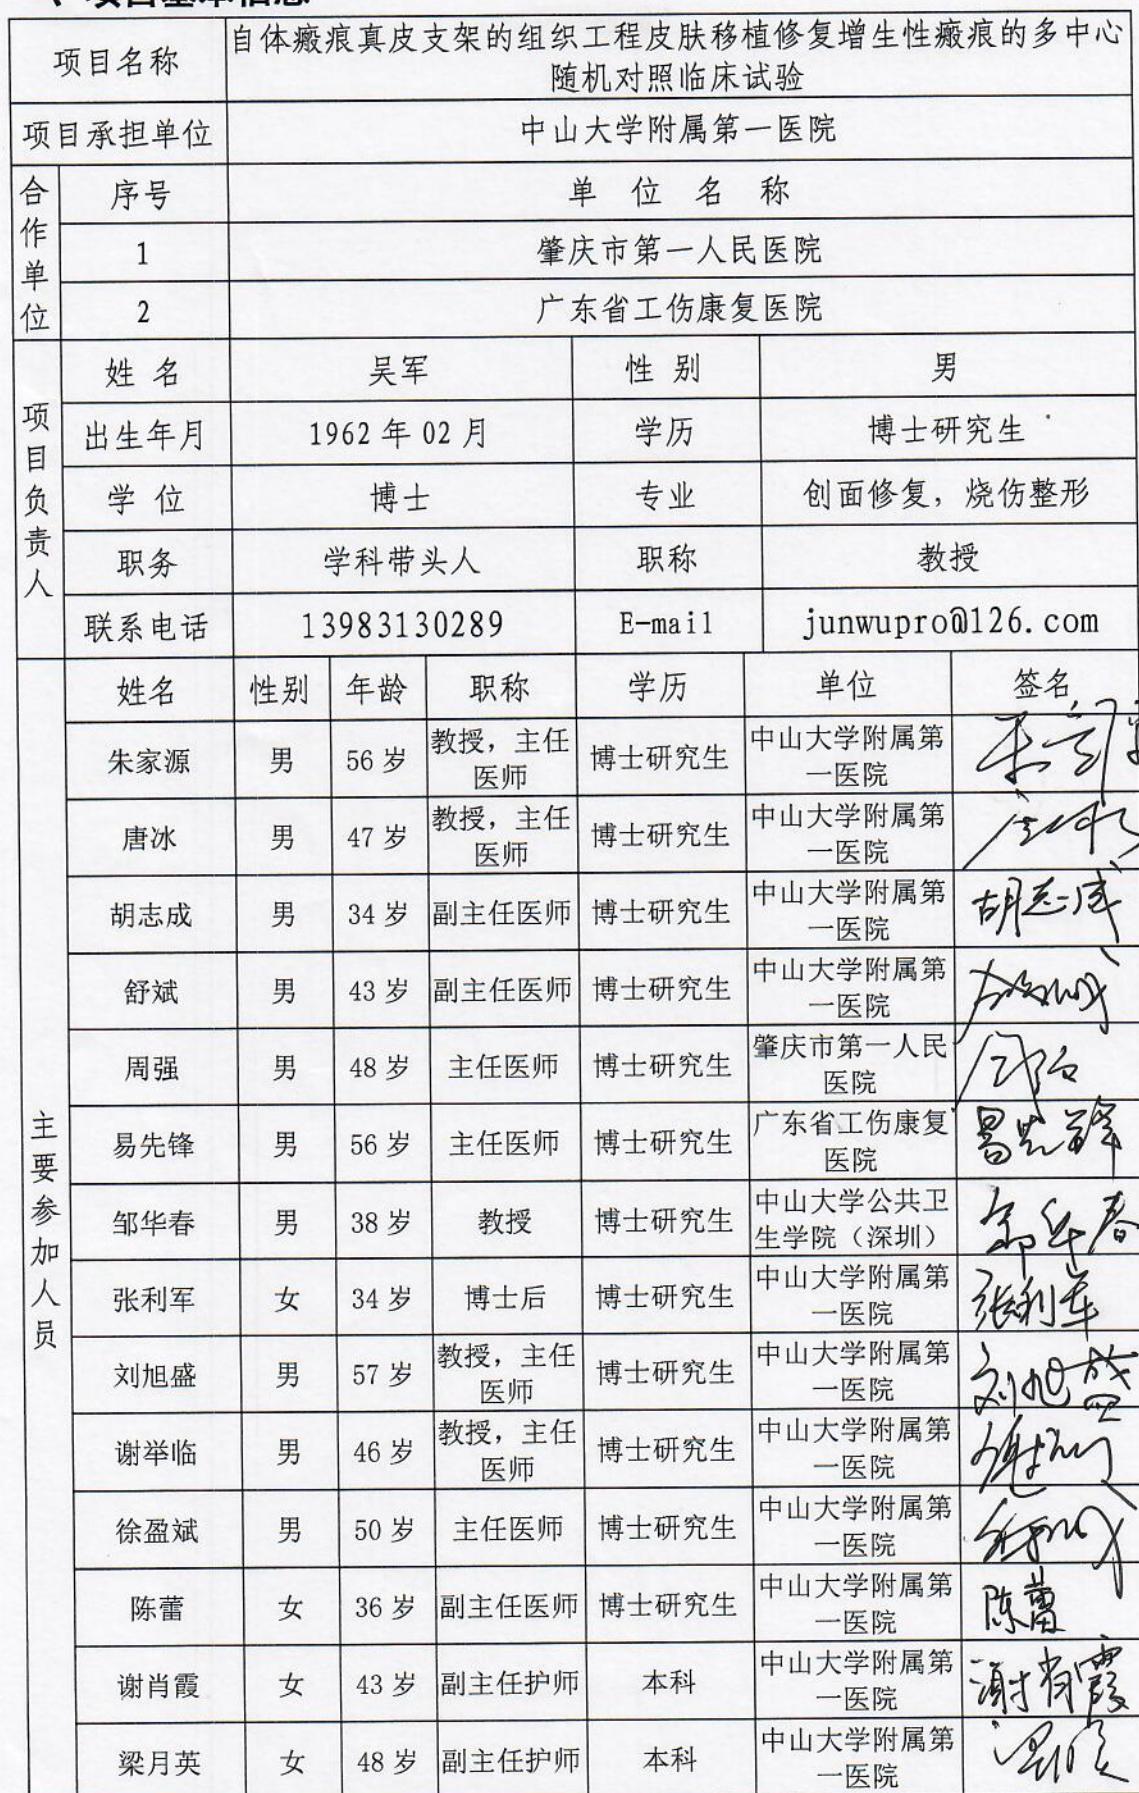 、项目基本信息
项目名称 自体瘢痕真皮支架的组织工程皮肤移植修复增生性瘢痕的多中心
随机对照临床试验
项目承担单位 中山大学附属第一医院
合作单位 序号 单位名称
1 肇庆市第一人民医院
2 广东省工伤康复医院
项目负责人 姓名 吴军 性别 男
出生年月 1962年02月 学历 博士研究生
学位 博士 专业 创面修复，烧伤整形
职务 学科带头人 职称 教授
联系电话 13983130289 E-mail junwupro@126.com
主要参加人员 姓名 性别 年龄 职称 学历 单位 签名
朱家源 男 56岁 教授，主任医师 博士研究生 中山大学附属第一医院
唐冰 男 47岁 教授，主任医师 博士研究生 中山大学附属第一医院
胡志成 男 34岁 副主任医师 博士研究生 中山大学附属第一医院 胡志成
舒斌 男 43岁 副主任医师 博士研究生 中山大学附属第一医院
周强 男 48岁 主任医师 博士研究生 肇庆市第一人民医院
易先锋 男 56岁 主任医师 博士研究生 广东省工伤康复医院 易先锋
邹华春 男 38岁 教授 博士研究生 中山大学公共卫生学院（深圳） 邹华春
张利军 女 34岁 博士后 博士研究生 中山大学附属第一医院 张利军
刘旭盛 男 57岁 教授，主任医师 博士研究生 中山大学附属第一医院 刘旭盛
谢举临 男 46岁 教授，主任医师 博士研究生 中山大学附属第一医院
徐盈斌 男 50岁 主任医师 博士研究生 中山大学附属第一医院
陈蕾 女 36岁 副主任医师 博士研究生 中山大学附属第一医院 陈蕾
谢肖霞 女 43岁 副主任护师 本科 中山大学附属第一医院 谢肖霞
梁月英 女 48岁 副主任护师 本科 中山大学附属第一医院